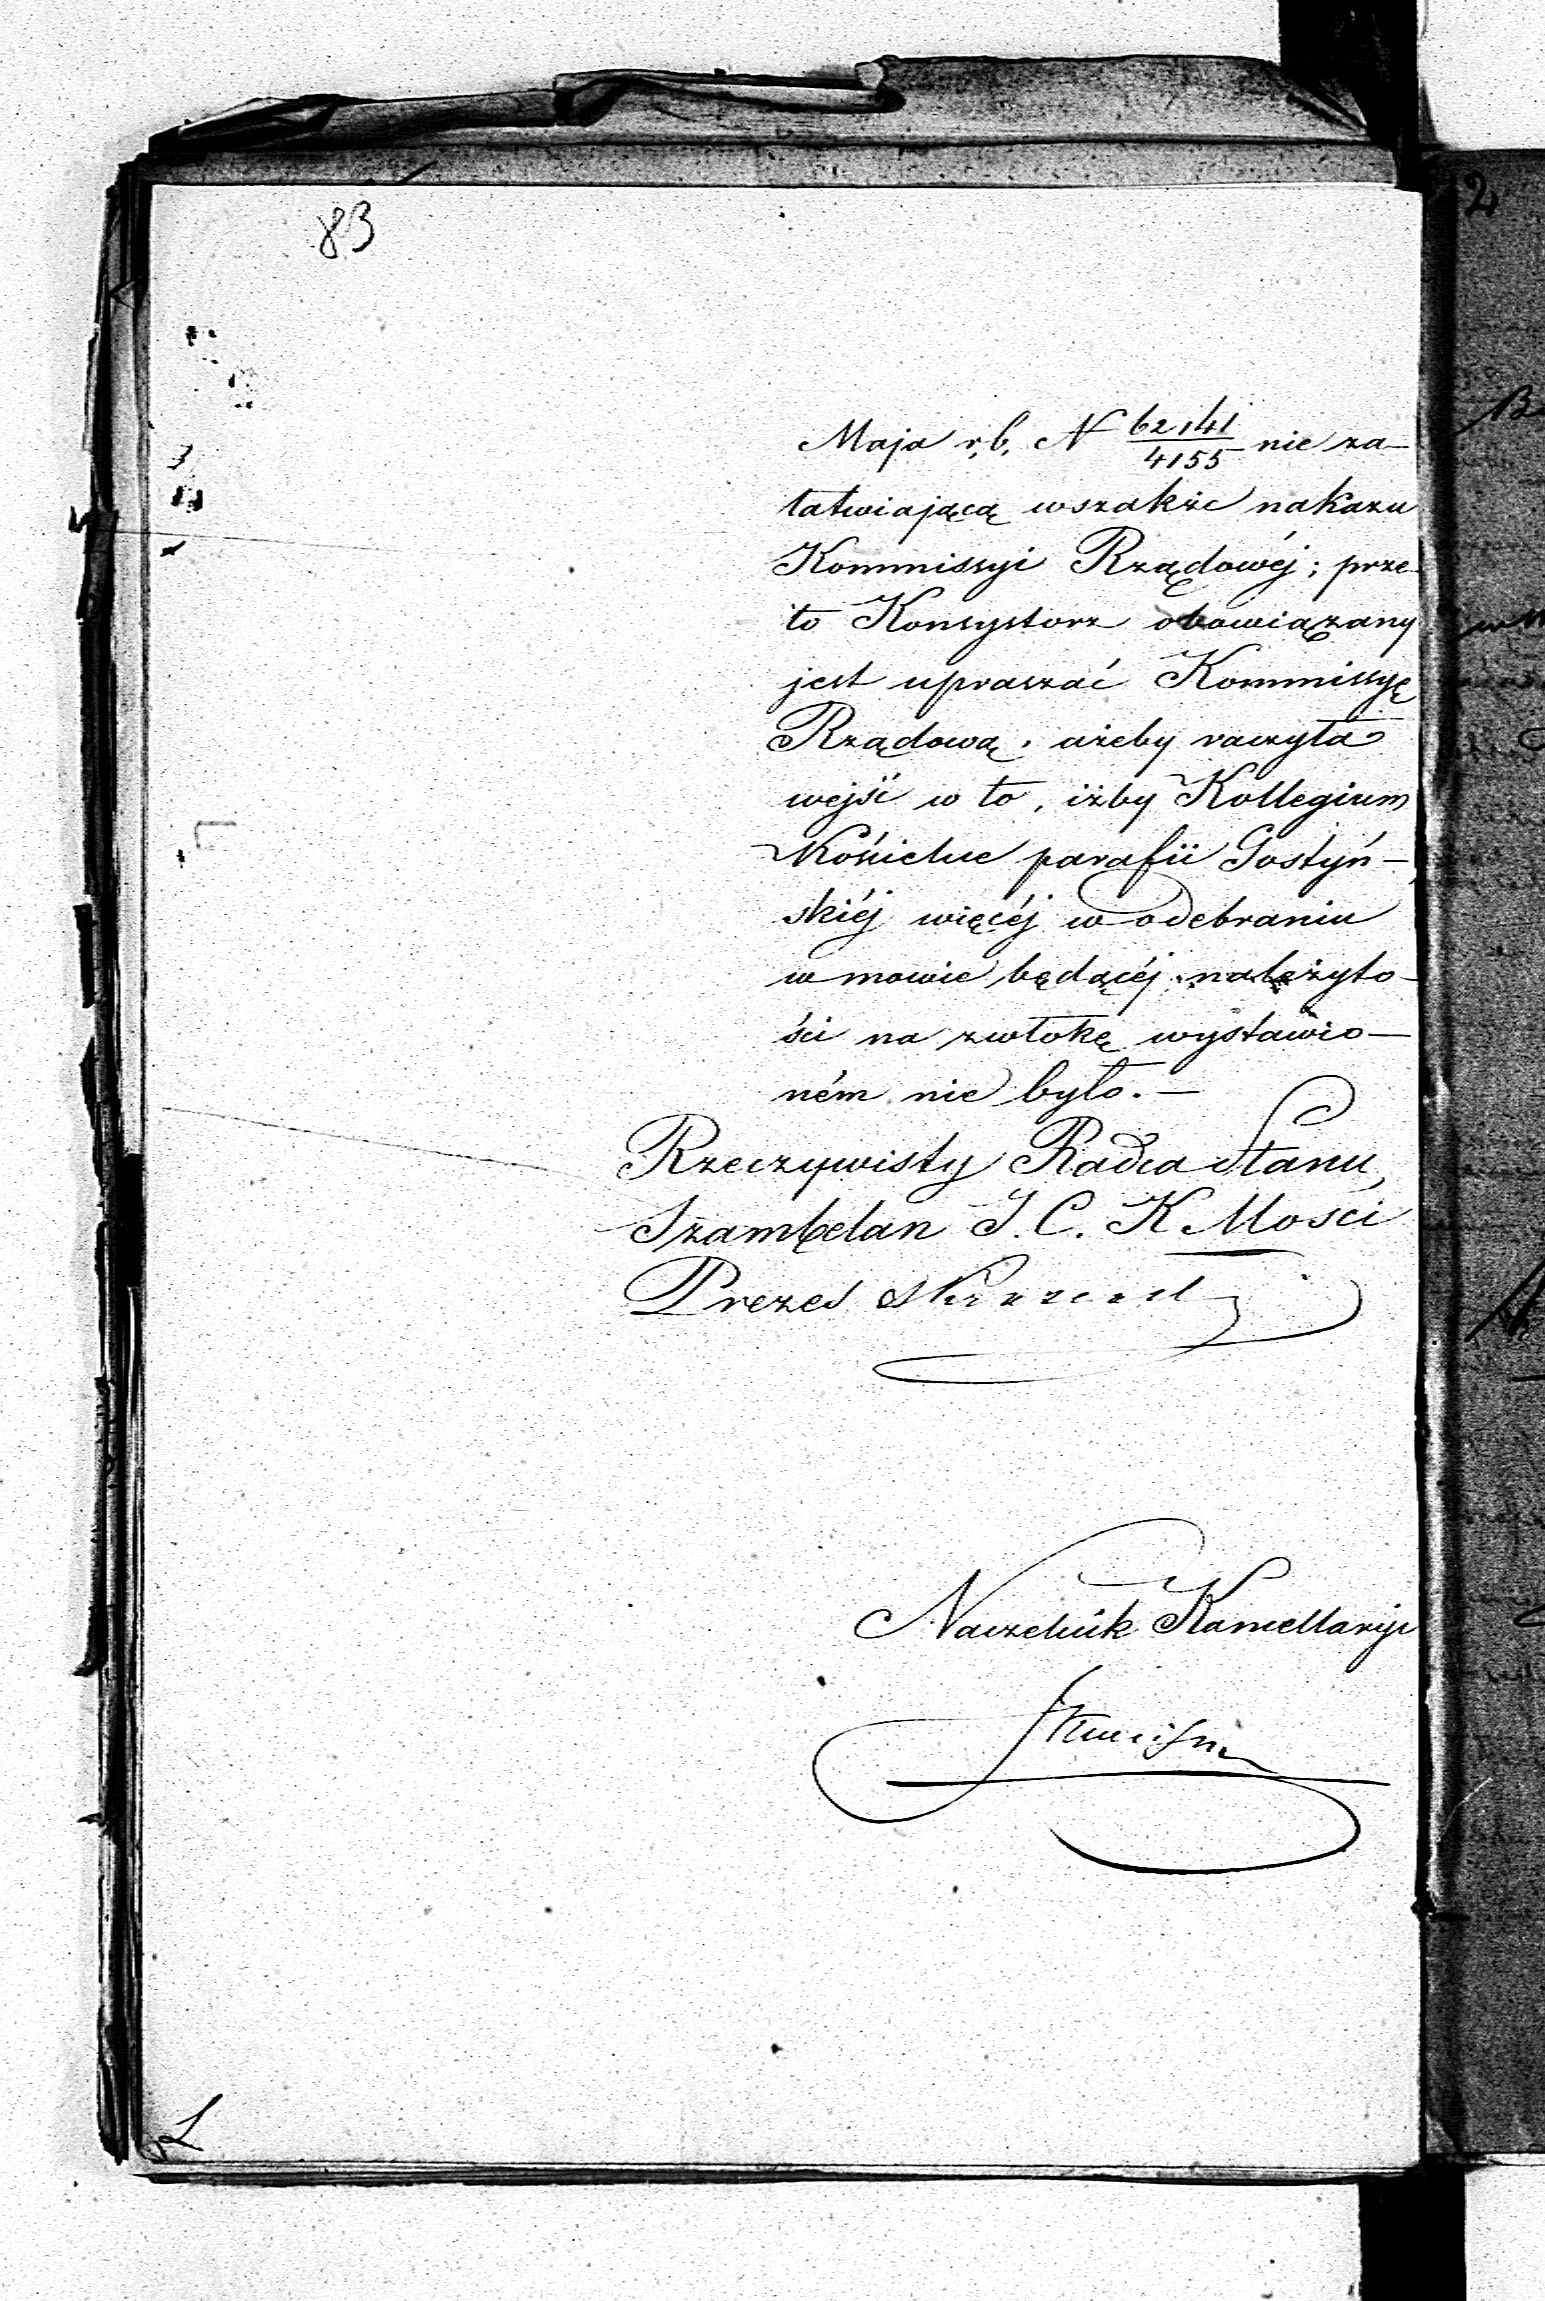 83
Maja r.b. N 62141/4155 nie za-
łatwiającą wszakże nakazu
Kommissyi Rządowéj; prze-
to Konsystorz obowiązany
jest upraszać Kommissyę
Rządową, ażeby raczyła
wejść w to, iżby Kollegium
Kościelne parafii Gostyń-
skiéj więcéj w odebraniu
w mowie będącéj należyto-
ści na zwłokę wystawio-
ném nie było. —
Rzeczywisty Radca Stanu,
Szambelan J. C. K Mości
Prezes
Naczelnik Kancellaryi